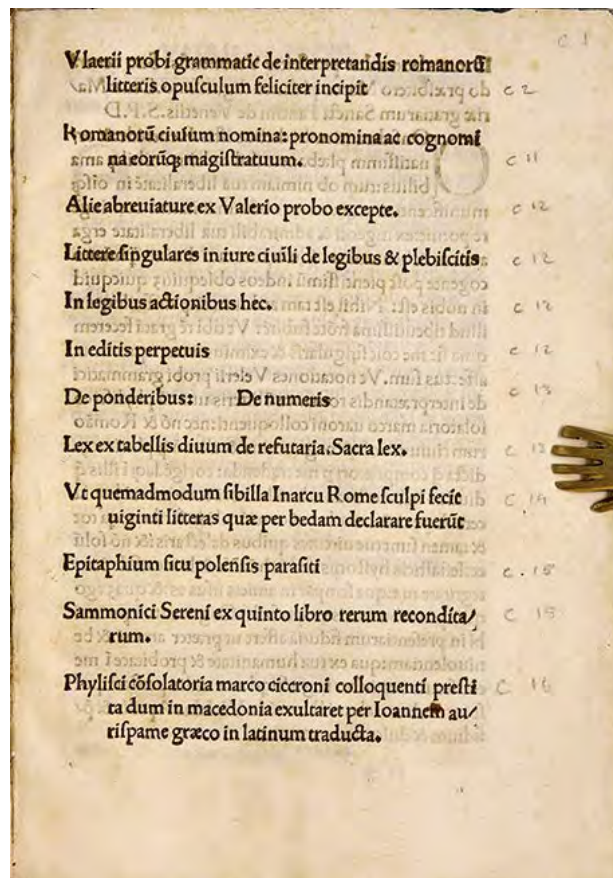 c 1
Vlaerii probi grammatic de interpretandis romanorũ
litteris opusculum feliciter incipit c 2
Romanorũ ciuium nomina: pronomina ac cognomi
na eorũqȝ magistratuum. c 11
Alie abreuiature ex Valerio probo excepte. c 12
Littere singulares in iure ciuili de legibus & plebiscitis c 12
In legibus actionibus hec. c 12
In editis perpetuis c 12
De ponderibus: De numeris c 13
Lex ex tabellis diuum de refutaria. Sacra lex. c 13
Vt quemadmodum sibilla Inarcu Rome sculpi fecit c 14
uiginti litteras quæ per bedam declarare fuerũt
Epitaphium situ polensis parasiti c. 15
Sammonici Sereni ex quinto libro rerum recondita/ c 15
rum.
Phylisci cõsolatoria marco ciceroni colloquenti presti c 16
ta dum in macedonia exultaret per Ioannem au/
rispame græco in latinum traducta.